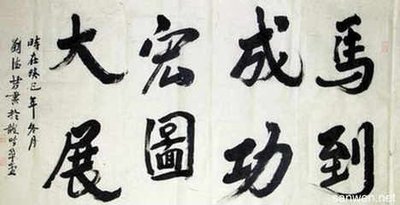 馬到
成功
宏圖
大展
時在癸巳年冬月
書於
sanwen.net